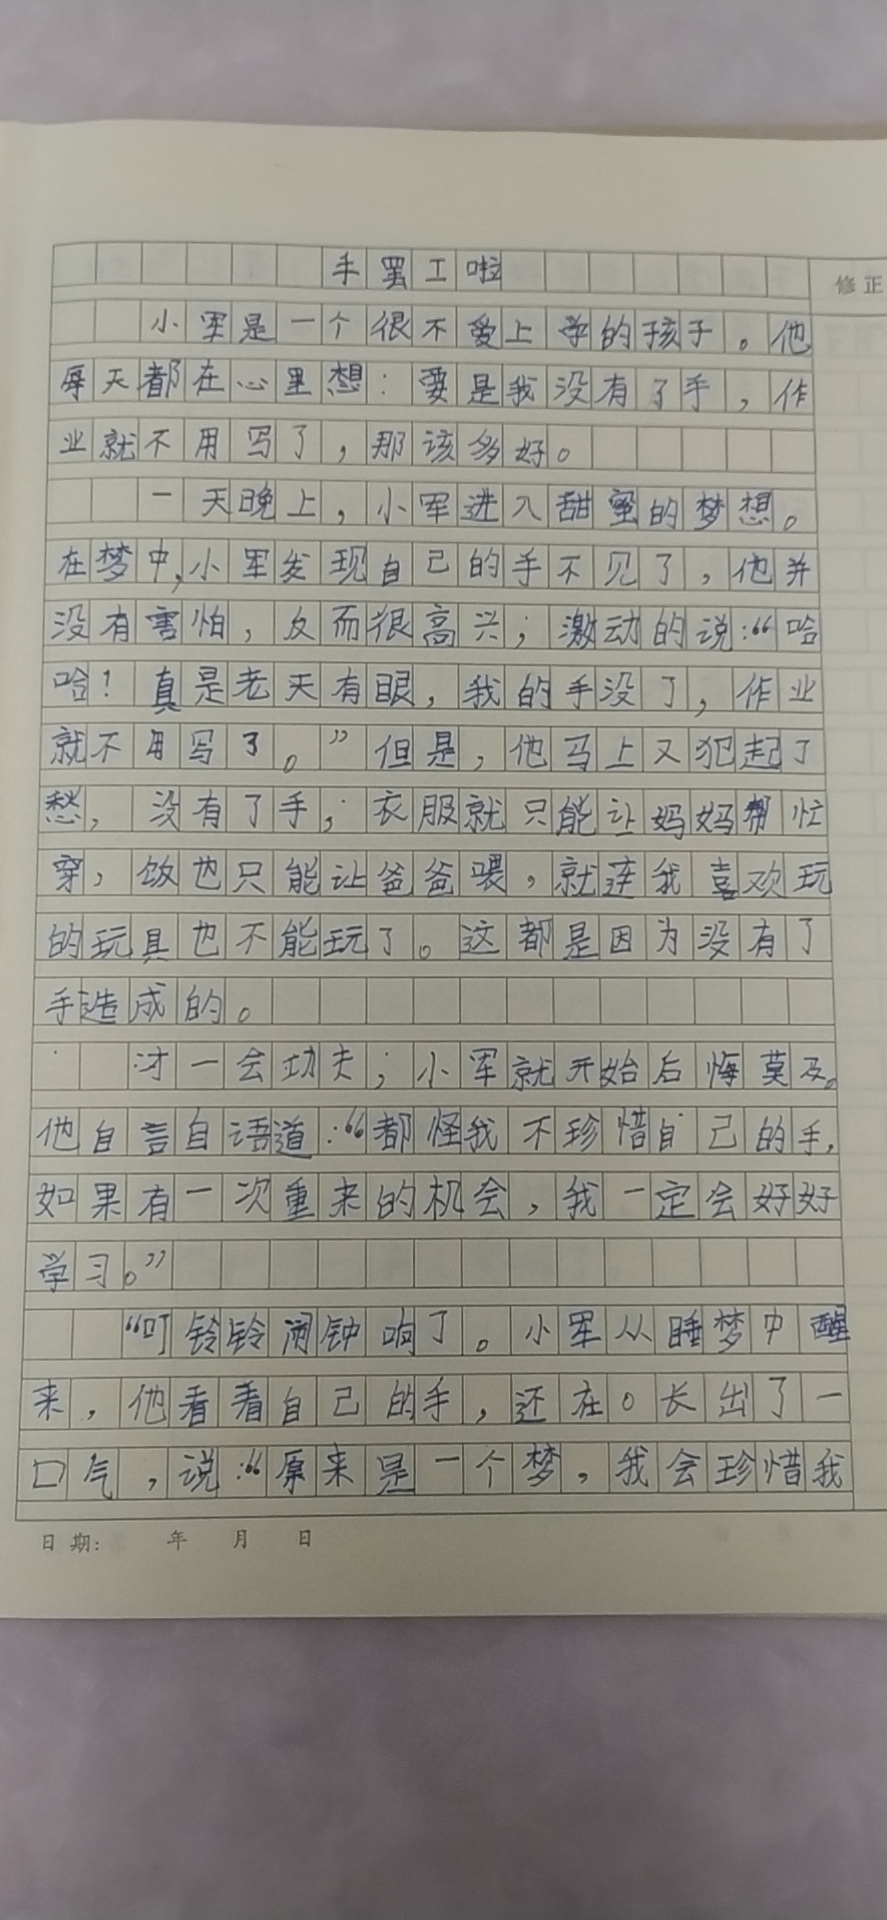 手罢工啦
修正
小军是一个很不爱上学的孩子。他
每天都在心里想：要是我没有了手，作
业就不用写了，那该多好。
一天晚上，小军进入甜蜜的梦想。
在梦中,小军发现自己的手不见了，他并
没有害怕，反而很高兴；激动的说：“哈
哈！真是老天有眼，我的手没了，作业
就不用写了。”但是，他马上又犯起了
愁，没有了手；衣服就只能让妈妈帮忙
穿，饭也只能让爸爸喂，就连我喜欢玩
的玩具也不能玩了。这都是因为没有了
手造成的。
才一会功夫；小军就开始后悔莫及。
他自言自语道：“都怪我不珍惜自己的手，
如果有一次重来的机会，我一定会好好
学习。”
“叮铃铃闹钟响了。小军从睡梦中醒
来，他看看自己的手，还在。长出了一
口气，说：“原来是一个梦，我会珍惜我
日期： 年 月 日